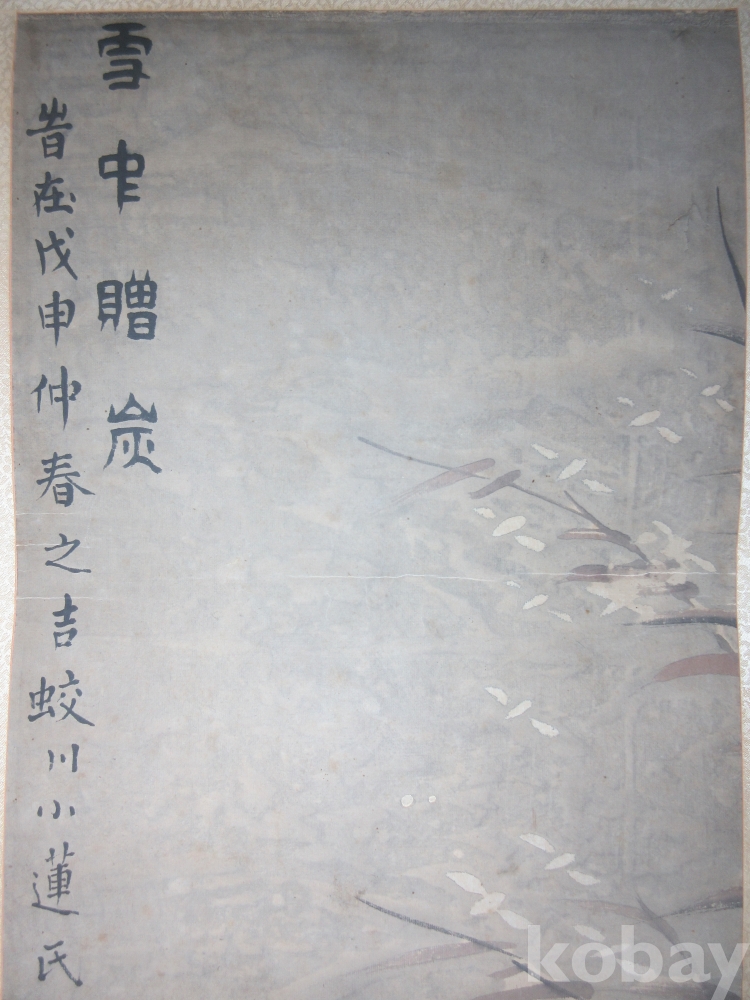 雪中贈炭
旹在戊申仲春之吉蛟川小蓮氏
kobay